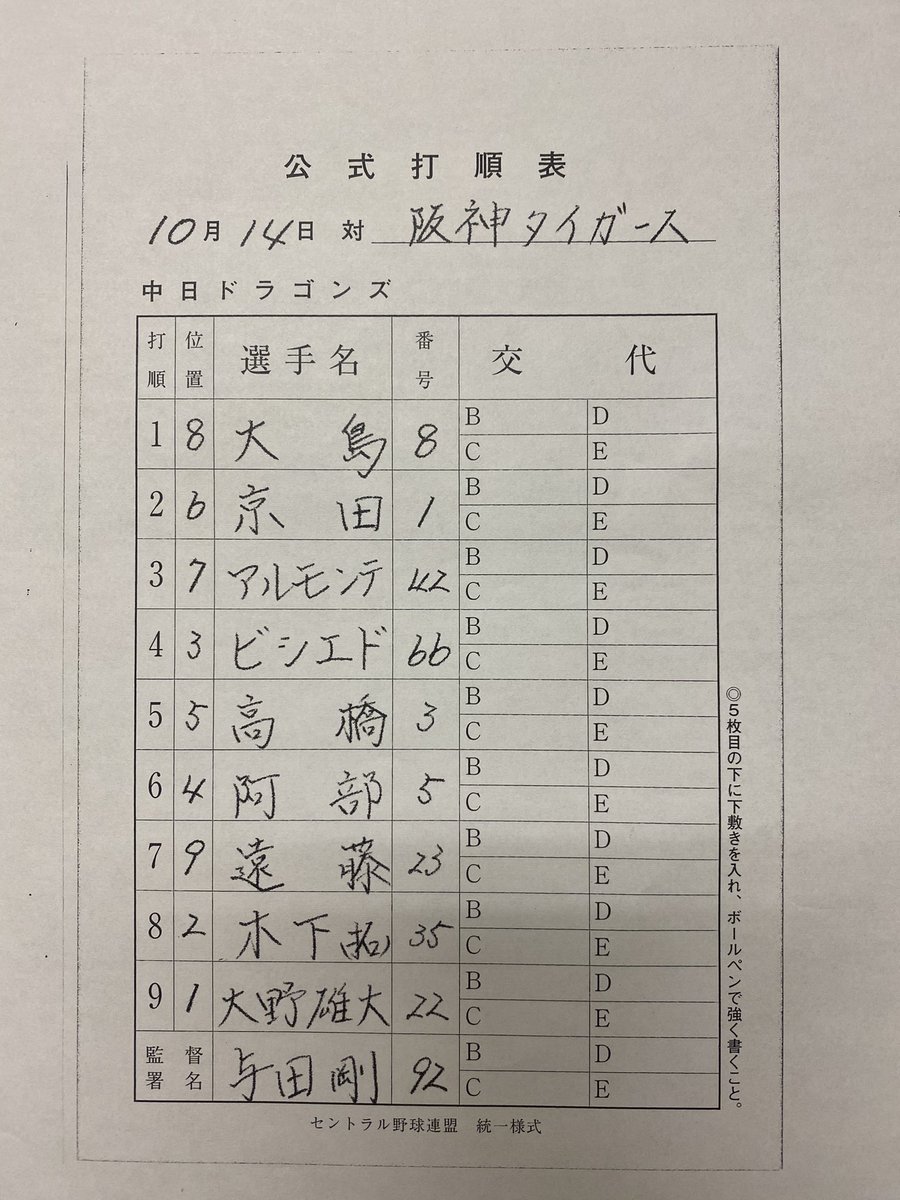 公式打順表
10月14日 対 阪神タイガース
中日ドラゴンズ
打順 位置 選手名 番号 交代
1 8 大島 8 B D
C E
2 6 京田 1 B D
C E
3 7 アルモンテ 42 B D
C E
4 3 ビシエド 66 B D
C E
5 5 高橋 3 B D
C E
6 4 阿部 5 B D
C E
7 9 遠藤 23 B D
C E
8 2 木下(拓) 35 B D
C E
9 1 大野雄大 22 B D
C E
監督署名 与田剛 92 B D
C E
セントラル野球連盟 統一様式
◎5枚目の下に下敷きを入れ、ボールペンで強く書くこと。